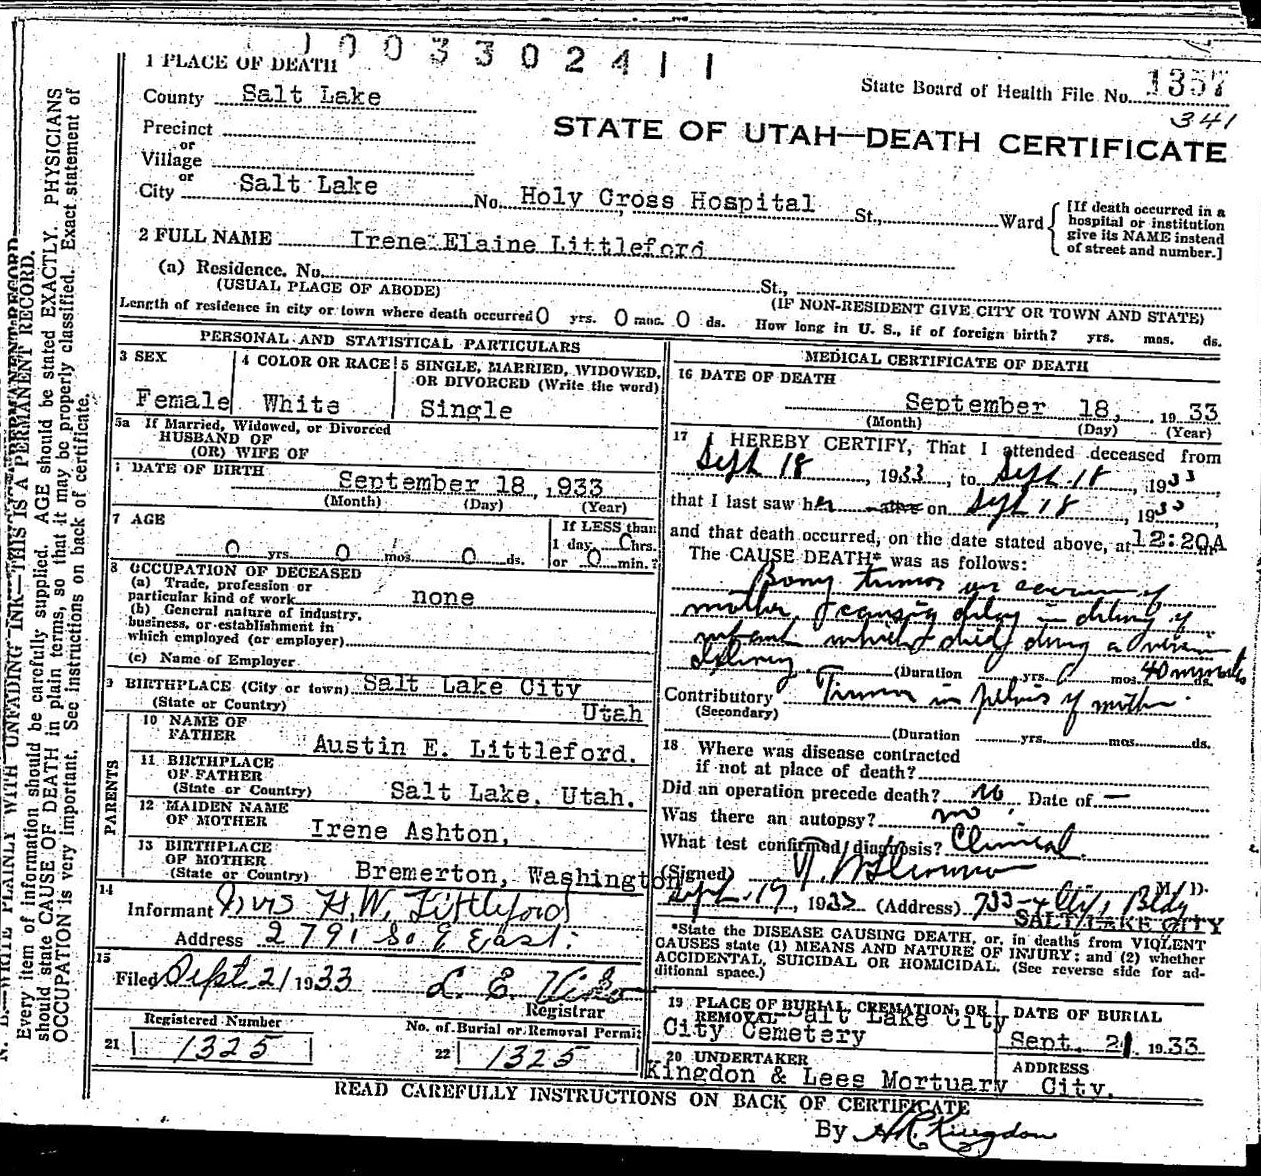 1003302411
1 PLACE OF DEATH
State Board of Health File No. 1357
341
County Salt Lake
STATE OF UTAH—DEATH CERTIFICATE
Precinct
or
Village
or
City Salt Lake No. Holy Cross Hospital St., Ward
[If death occurred in a
hospital or institution
give its NAME instead
of street and number.]
2 FULL NAME Irene Elaine Littleford
(a) Residence. No. St.,
(USUAL PLACE OF ABODE) (IF NON-RESIDENT GIVE CITY OR TOWN AND STATE)
Length of residence in city or town where death occurred 0 yrs. 0 mos. 0 ds. How long in U. S., if of foreign birth? yrs. mos. ds.
PERSONAL AND STATISTICAL PARTICULARS
3 SEX
Female
4 COLOR OR RACE
White
5 SINGLE, MARRIED, WIDOWED,
OR DIVORCED (Write the word)
Single
5a If Married, Widowed, or Divorced
HUSBAND OF
(OR) WIFE OF
DATE OF BIRTH
September 18, 1933
(Month) (Day) (Year)
7 AGE
0 yrs. 0 mos. 0 ds.
If LESS than
1 day 0 hrs.
or 0 min.?
8 OCCUPATION OF DECEASED
(a) Trade, profession or
particular kind of work none
(b) General nature of industry,
business, or establishment in
which employed (or employer)
(c) Name of Employer
9 BIRTHPLACE (City or town) Salt Lake City
(State or Country) Utah
PARENTS
10 NAME OF
FATHER Austin E. Littleford.
11 BIRTHPLACE
OF FATHER
(State or Country) Salt Lake, Utah.
12 MAIDEN NAME
OF MOTHER Irene Ashton,
13 BIRTHPLACE
OF MOTHER
(State or Country) Bremerton, Washington
14
Informant Mrs H.W. Littleford
Address 2791 So 9 East.
15
Filed Sept 21 1933 L. E.
Registrar
Registered Number
21 1325
No. of Burial or Removal Permit
22 1325
MEDICAL CERTIFICATE OF DEATH
16 DATE OF DEATH
September 18, 1933
(Month) (Day) (Year)
17 I HEREBY CERTIFY, That I attended deceased from
Sept 18, 1933, to Sept. 18, 1933
that I last saw her alive on Sept 18, 1933,
and that death occurred, on the date stated above, at 12:20A
The CAUSE DEATH* was as follows:
Bony tumor on sacrum of
mother, causing delay in delivery of
infant which died during a
delivery (Duration yrs. mos. 40 minutes ds.
Contributory Tumor in pelvis of mother
(Secondary)
(Duration yrs. mos. ds.
18 Where was disease contracted
if not at place of death?
Did an operation precede death? No Date of —
Was there an autopsy? no
What test confirmed diagnosis? Clinical.
(Signed) M. D.
Sept. 19, 1933 (Address) Bldg
SALT LAKE CITY
*State the DISEASE CAUSING DEATH, or, in deaths from VIOLENT
CAUSES state (1) MEANS AND NATURE OF INJURY; and (2) whether
ACCIDENTAL, SUICIDAL OR HOMICIDAL. (See reverse side for ad-
ditional space.)
19 PLACE OF BURIAL, CREMATION, OR
REMOVAL Salt Lake City
City Cemetery
DATE OF BURIAL
Sept. 21. 1933
20 UNDERTAKER
Kingdon & Lees Mortuary
ADDRESS
City.
READ CAREFULLY INSTRUCTIONS ON BACK OF CERTIFICATE
By Kingdon
N. B.—WRITE PLAINLY WITH UNFADING INK—THIS IS A PERMANENT RECORD.
Every item of information should be carefully supplied. AGE should be stated EXACTLY. PHYSICIANS
should state CAUSE OF DEATH in plain terms, so that it may be properly classified. Exact statement of
OCCUPATION is very important. See instructions on back of certificate.